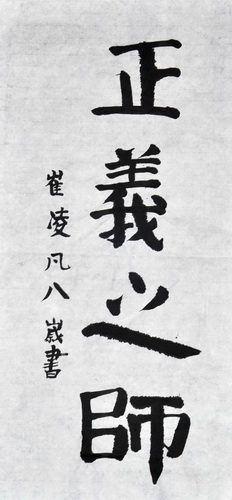 正義之師
崔凌凡八歲書